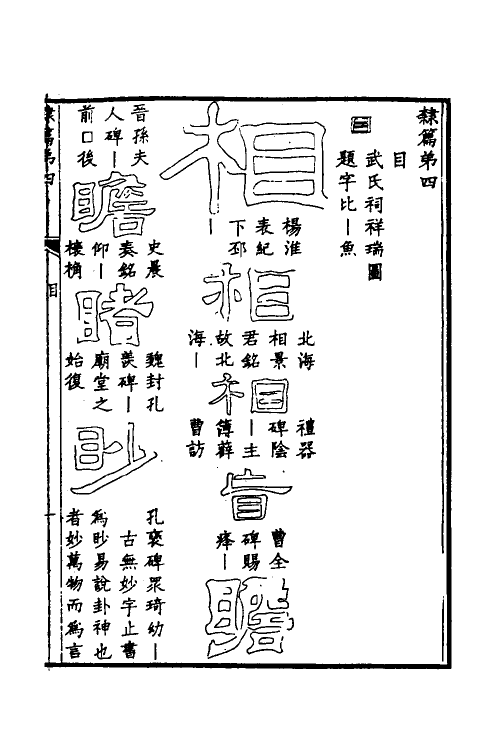 隸篇弟四
目
武氏祠祥瑞圖
題字比丨魚
相
楊淮
表紀
下邳
丨
相
北海
相景
君銘
故北
海丨
相
禮器
碑陰
丨主
簿薛
曹訪
盲
曹全
碑賜
瘽丨
瞻
晉孫夫
人碑丨
前口後
瞻
史晨
奏銘
仰丨
榱桷
睹
魏封孔
羨碑丨
廟堂之
始復
眇
孔褒碑眾琦幼丨
古無妙字止書
為眇易說卦神也
者妙萬物而為言
隸篇弟四
目
一